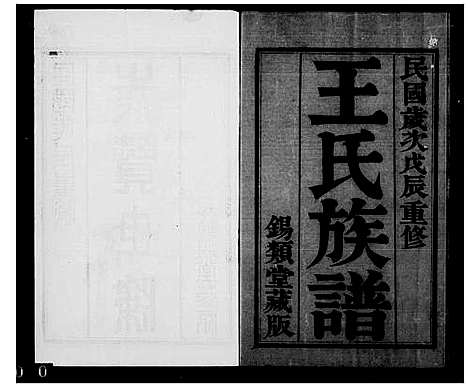 民國歲次戊辰重修
王氏族譜
錫類堂藏版